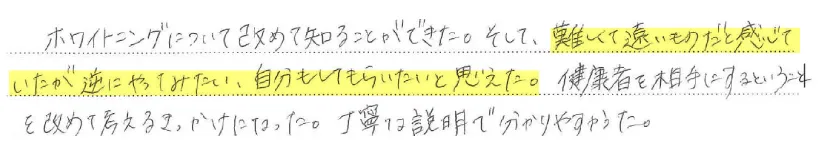 ホワイトニングについて改めて知ることができた。そして、難しくて遠いものだと感じて
いたが逆にやってみたい、自分もしてもらいたいと思えた。健康者を相手にするということ
を改めて考えるきっかけになった。丁寧な説明で分かりやすかった。